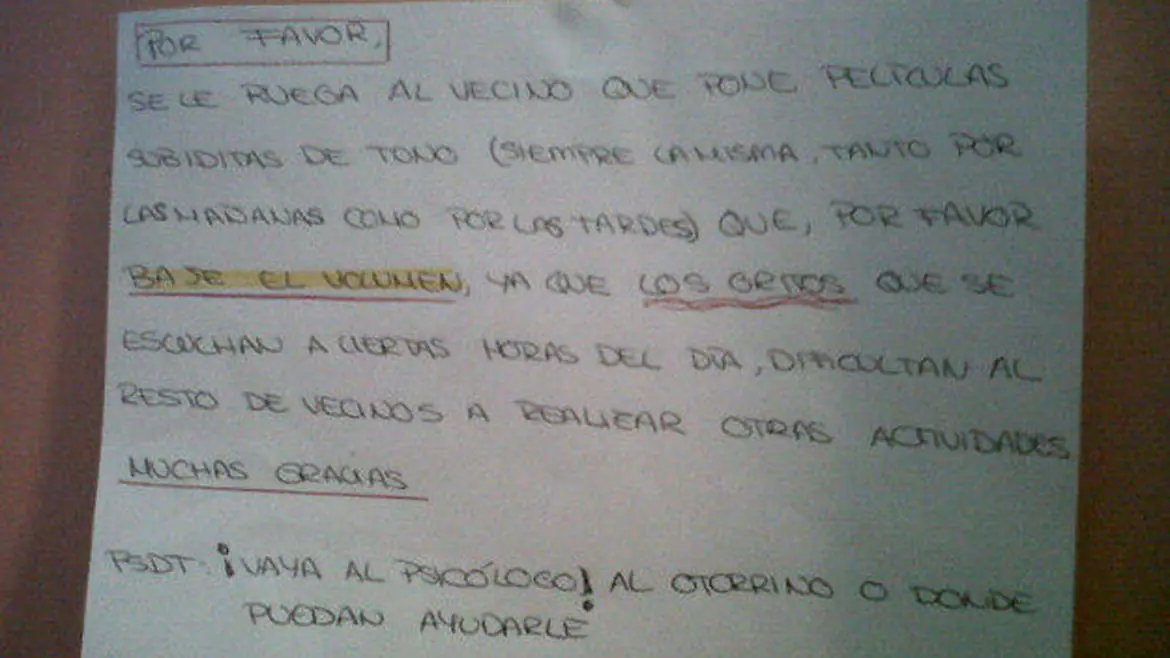 POR FAVOR,
SE LE RUEGA AL VECINO QUE PONE PELÍCULAS
SUBIDITAS DE TONO (SIEMPRE LA MISMA, TANTO POR
LAS MAÑANAS COMO POR LAS TARDES) QUE, POR FAVOR
BAJE EL VOLUMEN, YA QUE LOS GRITOS QUE SE
ESCUCHAN A CIERTAS HORAS DEL DÍA, DIFICULTAN AL
RESTO DE VECINOS A REALIZAR OTRAS ACTIVIDADES
MUCHAS GRACIAS
PSDT: ¡VAYA AL PSICÓLOGO! AL OTORRINO O DONDE
PUEDAN AYUDARLE